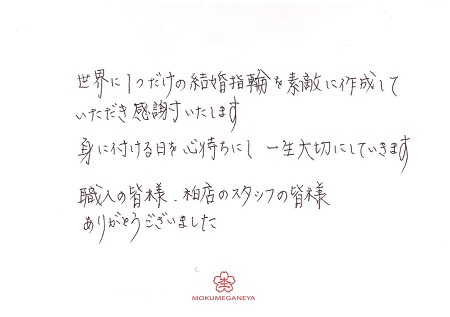 世界に1つだけの結婚指輪を素敵に作成して
いただき感謝いたします
身に付ける日を心待ちにし 一生大切にしていきます
職人の皆様、柏店のスタッフの皆様
ありがとうございました
MOKUMEGANEYA